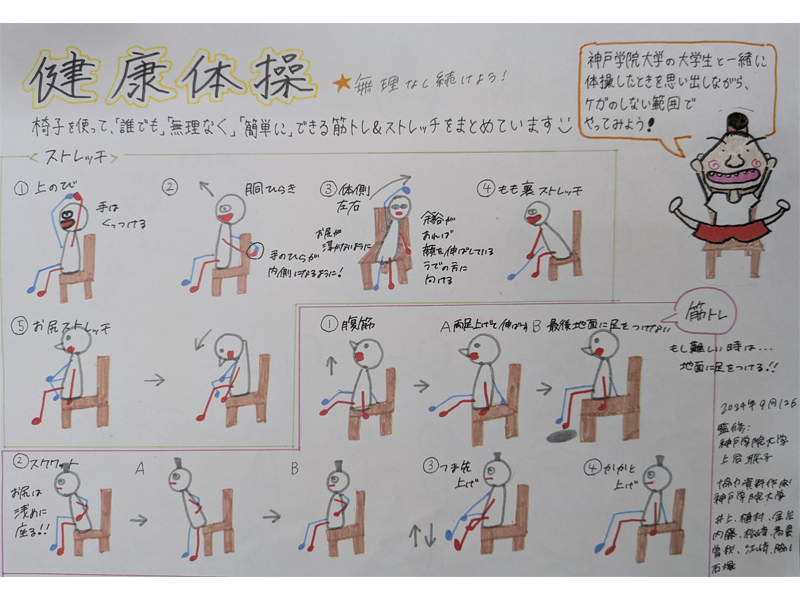 健康体操
★無理なく続けよう!
神戸学院大学の大学生と一緒に
体操したときを思い出しながら、
ケガのしない範囲で
やってみよう!
椅子を使って、「誰でも」「無理なく」「簡単に」できる筋トレ&ストレッチをまとめています
<ストレッチ>
①上のび
手は
くっつける
②胴ひらき
手のひらが
内側になるように!
③体側
左右
お尻が
浮かないように
余裕が
あれば
顔を伸ばしている
うでの方に
向ける
④もも裏ストレッチ
⑤お尻ストレッチ
筋トレ
①腹筋
A 両足上げて伸ばす
B 最後地面に足をつけない
もし難しい時は…
地面に足をつける!!
②スクワット
A
B
お尻は
浅めに
座る!!
③つま先
上げ
④かかと
上げ
2024年9月12日
監修:
神戸学院大学
上谷
神戸学院大学
井上、植村、
内藤、
石塚